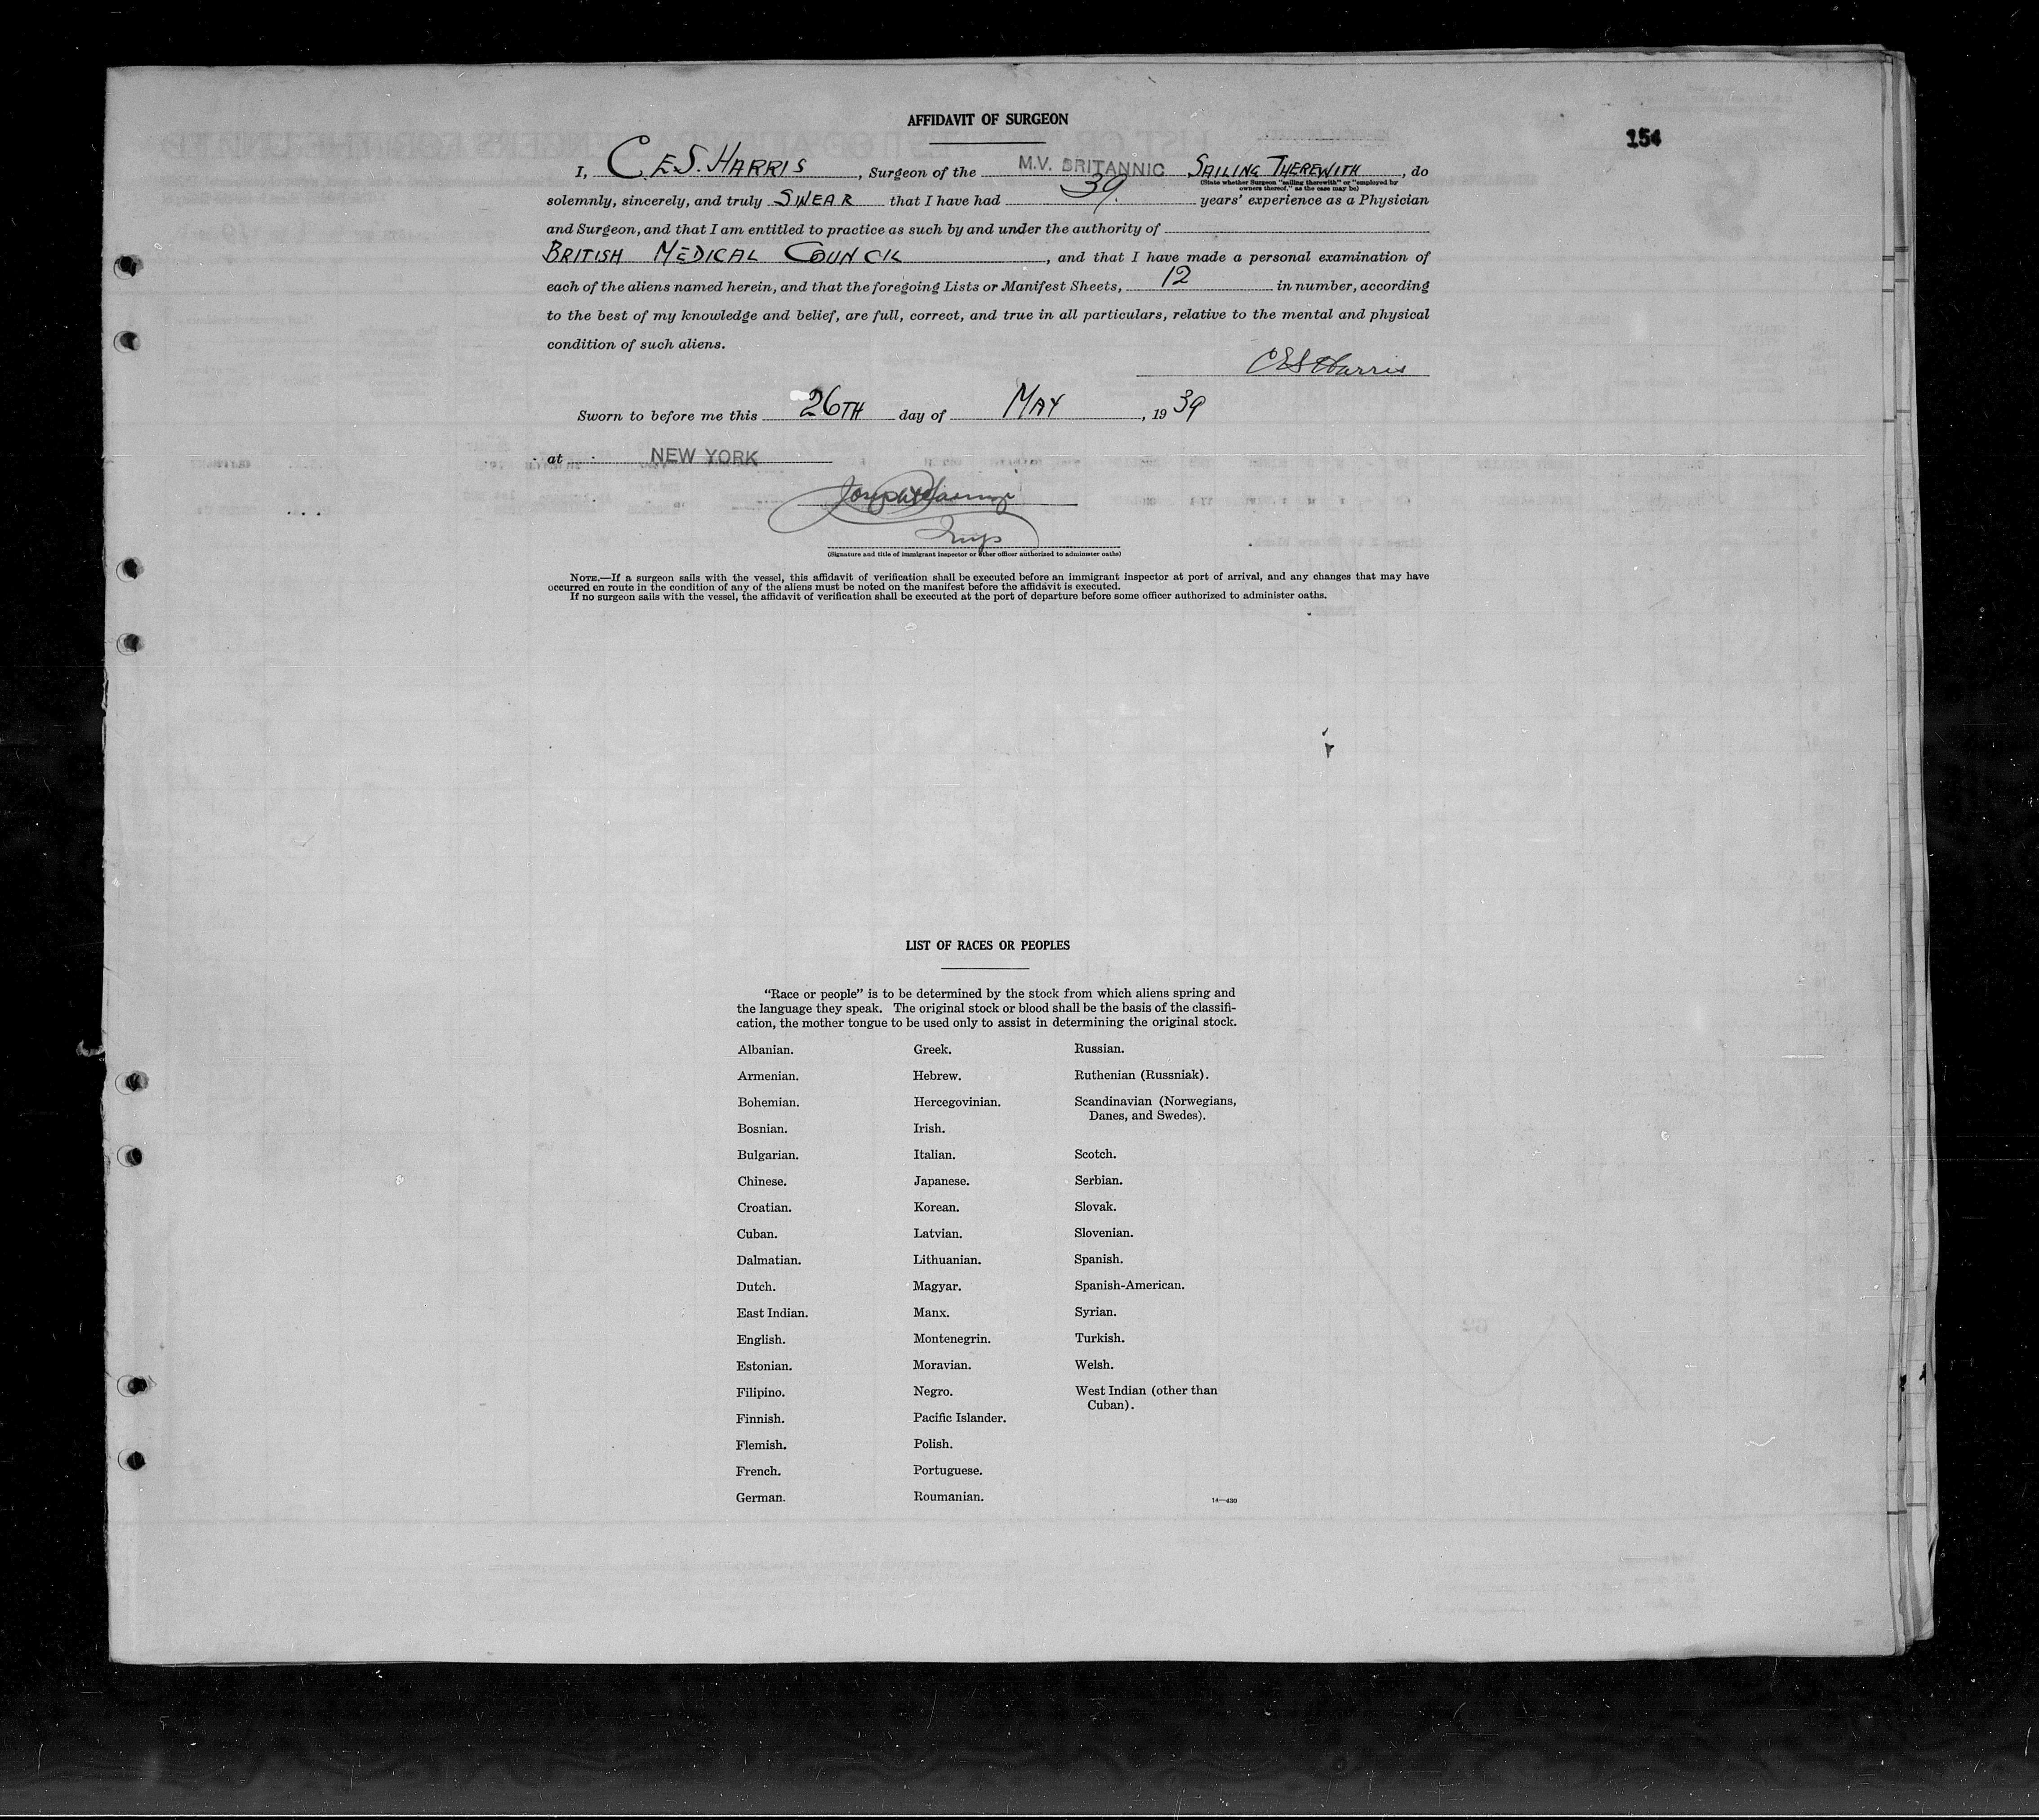 154
AFFIDAVIT OF SURGEON
I, C.E.S. HARRIS, Surgeon of the M.V. BRITANNIC SAILING THEREWITH, do
(State whether Surgeon "sailing therewith" or "employed by
owners thereof," as the case may be)
solemnly, sincerely, and truly SWEAR that I have had 39. years' experience as a Physician
and Surgeon, and that I am entitled to practice as such by and under the authority of
BRITISH MEDICAL COUNCIL, and that I have made a personal examination of
each of the aliens named herein, and that the foregoing Lists or Manifest Sheets, 12 in number, according
to the best of my knowledge and belief, are full, correct, and true in all particulars, relative to the mental and physical
condition of such aliens.
CES Harris
Sworn to before me this 26TH day of MAY, 1939
at NEW YORK
Insp
(Signature and title of immigrant inspector or other officer authorized to administer oaths)
NOTE.—If a surgeon sails with the vessel, this affidavit of verification shall be executed before an immigrant inspector at port of arrival, and any changes that may have
occurred en route in the condition of any of the aliens must be noted on the manifest before the affidavit is executed.
If no surgeon sails with the vessel, the affidavit of verification shall be executed at the port of departure before some officer authorized to administer oaths.
LIST OF RACES OR PEOPLES
"Race or people" is to be determined by the stock from which aliens spring and
the language they speak. The original stock or blood shall be the basis of the classifi-
cation, the mother tongue to be used only to assist in determining the original stock.
Albanian.
Armenian.
Bohemian.
Bosnian.
Bulgarian.
Chinese.
Croatian.
Cuban.
Dalmatian.
Dutch.
East Indian.
English.
Estonian.
Filipino.
Finnish.
Flemish.
French.
German.
Greek.
Hebrew.
Hercegovinian.
Irish.
Italian.
Japanese.
Korean.
Latvian.
Lithuanian.
Magyar.
Manx.
Montenegrin.
Moravian.
Negro.
Pacific Islander.
Polish.
Portuguese.
Roumanian.
Russian.
Ruthenian (Russniak).
Scandinavian (Norwegians,
Danes, and Swedes).
Scotch.
Serbian.
Slovak.
Slovenian.
Spanish.
Spanish-American.
Syrian.
Turkish.
Welsh.
West Indian (other than
Cuban).
14—430